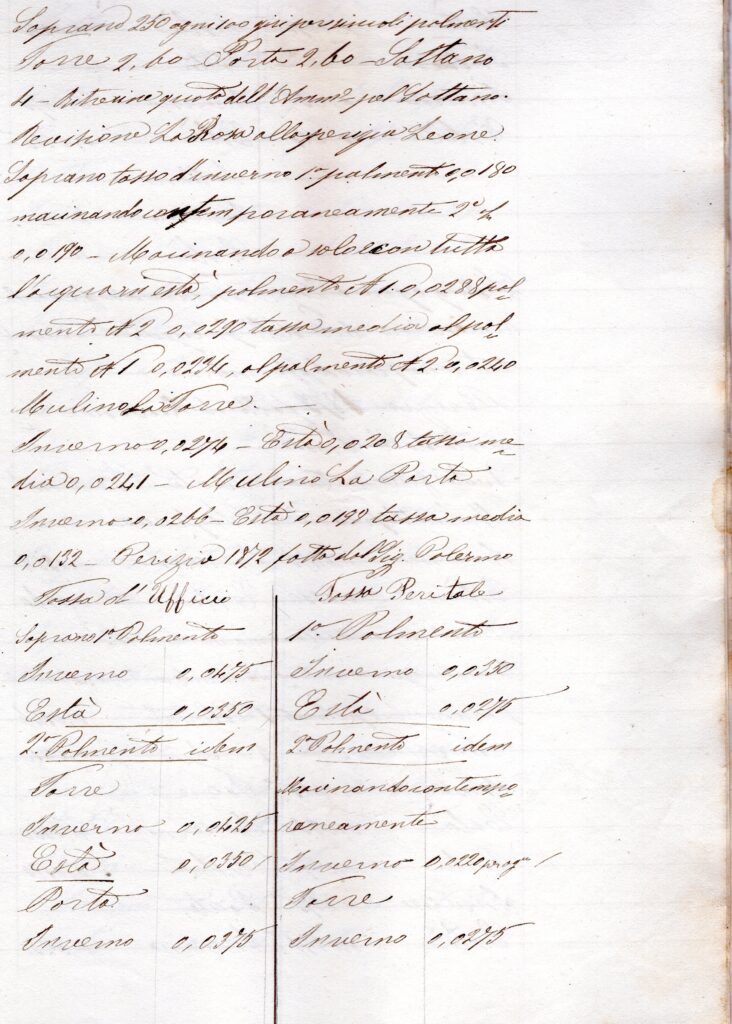 Soprano 250 ogni 100 giri per singoli palmenti
Torre 2,60 Porta 2,60 – Sottano
4 – Ritrecine quota dell'Amm.e pel Sottano.
Revisione La Rosa alla perizia Leone.
Soprano tassa d'inverno 1° palmento 0,0180
macinando contemporaneamente 2°
0,0190 – Macinando a solo e con tutta
l'acqua està, palmento N 1. 0,0288 pal-
mento N 2 0,0290 tassa media al pal-
mento N 1 0,0234, al palmento N 2. 0,0240
Mulino La Torre. –
Inverno 0,0274 – Està 0,0208 tassa me-
dia 0,0241 – Mulino La Porta
Inverno 0,0266 – Està 0,0198 tassa media
0,0132 – Perizia 1872 fatta dal Sig. Palermo
Tassa d'Ufficio
Soprano 1° Palmento
Inverno 0,0475
Està 0,0350
2° Palmento idem
Torre
Inverno 0,0425
Està 0,0350 /
Porta
Inverno 0,0375
Tassa Peritale
1° Palmento
Inverno 0,0350
Està 0,0275 /
2° Palmento idem
Macinando contempo-
raneamente
Inverno 0,0220 /
Torre
Inverno 0,0275